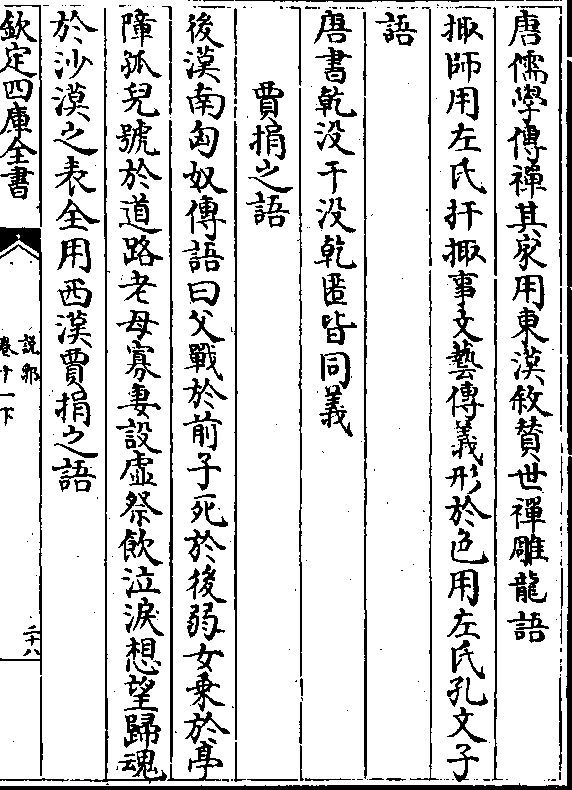 唐儒學傳禪其家用東漢敘贊世禪雕龍語
掫師用左氏扞掫事文藝傳義形於色用左氏孔文子
語
唐書乾没干没乾匿皆同義
賈捐之語
後漢南匈奴傳語曰父戰於前子死於後弱女乗於亭
障孤兒號於道路老母寡妻設虛祭飲泣淚想望歸魂
於沙漠之表全用西漢賈捐之語
欽定四庫全書
說郛
卷十一下
二十八